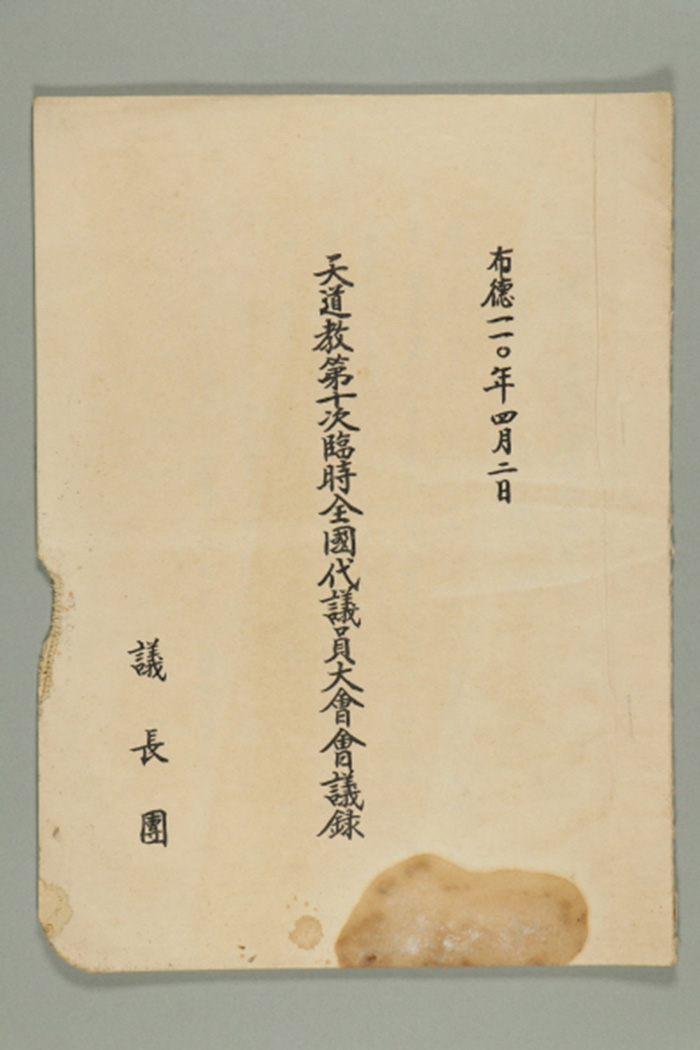 布德一一〇年四月二日
天道教第十次臨時全國代議員大會會議録
議長團